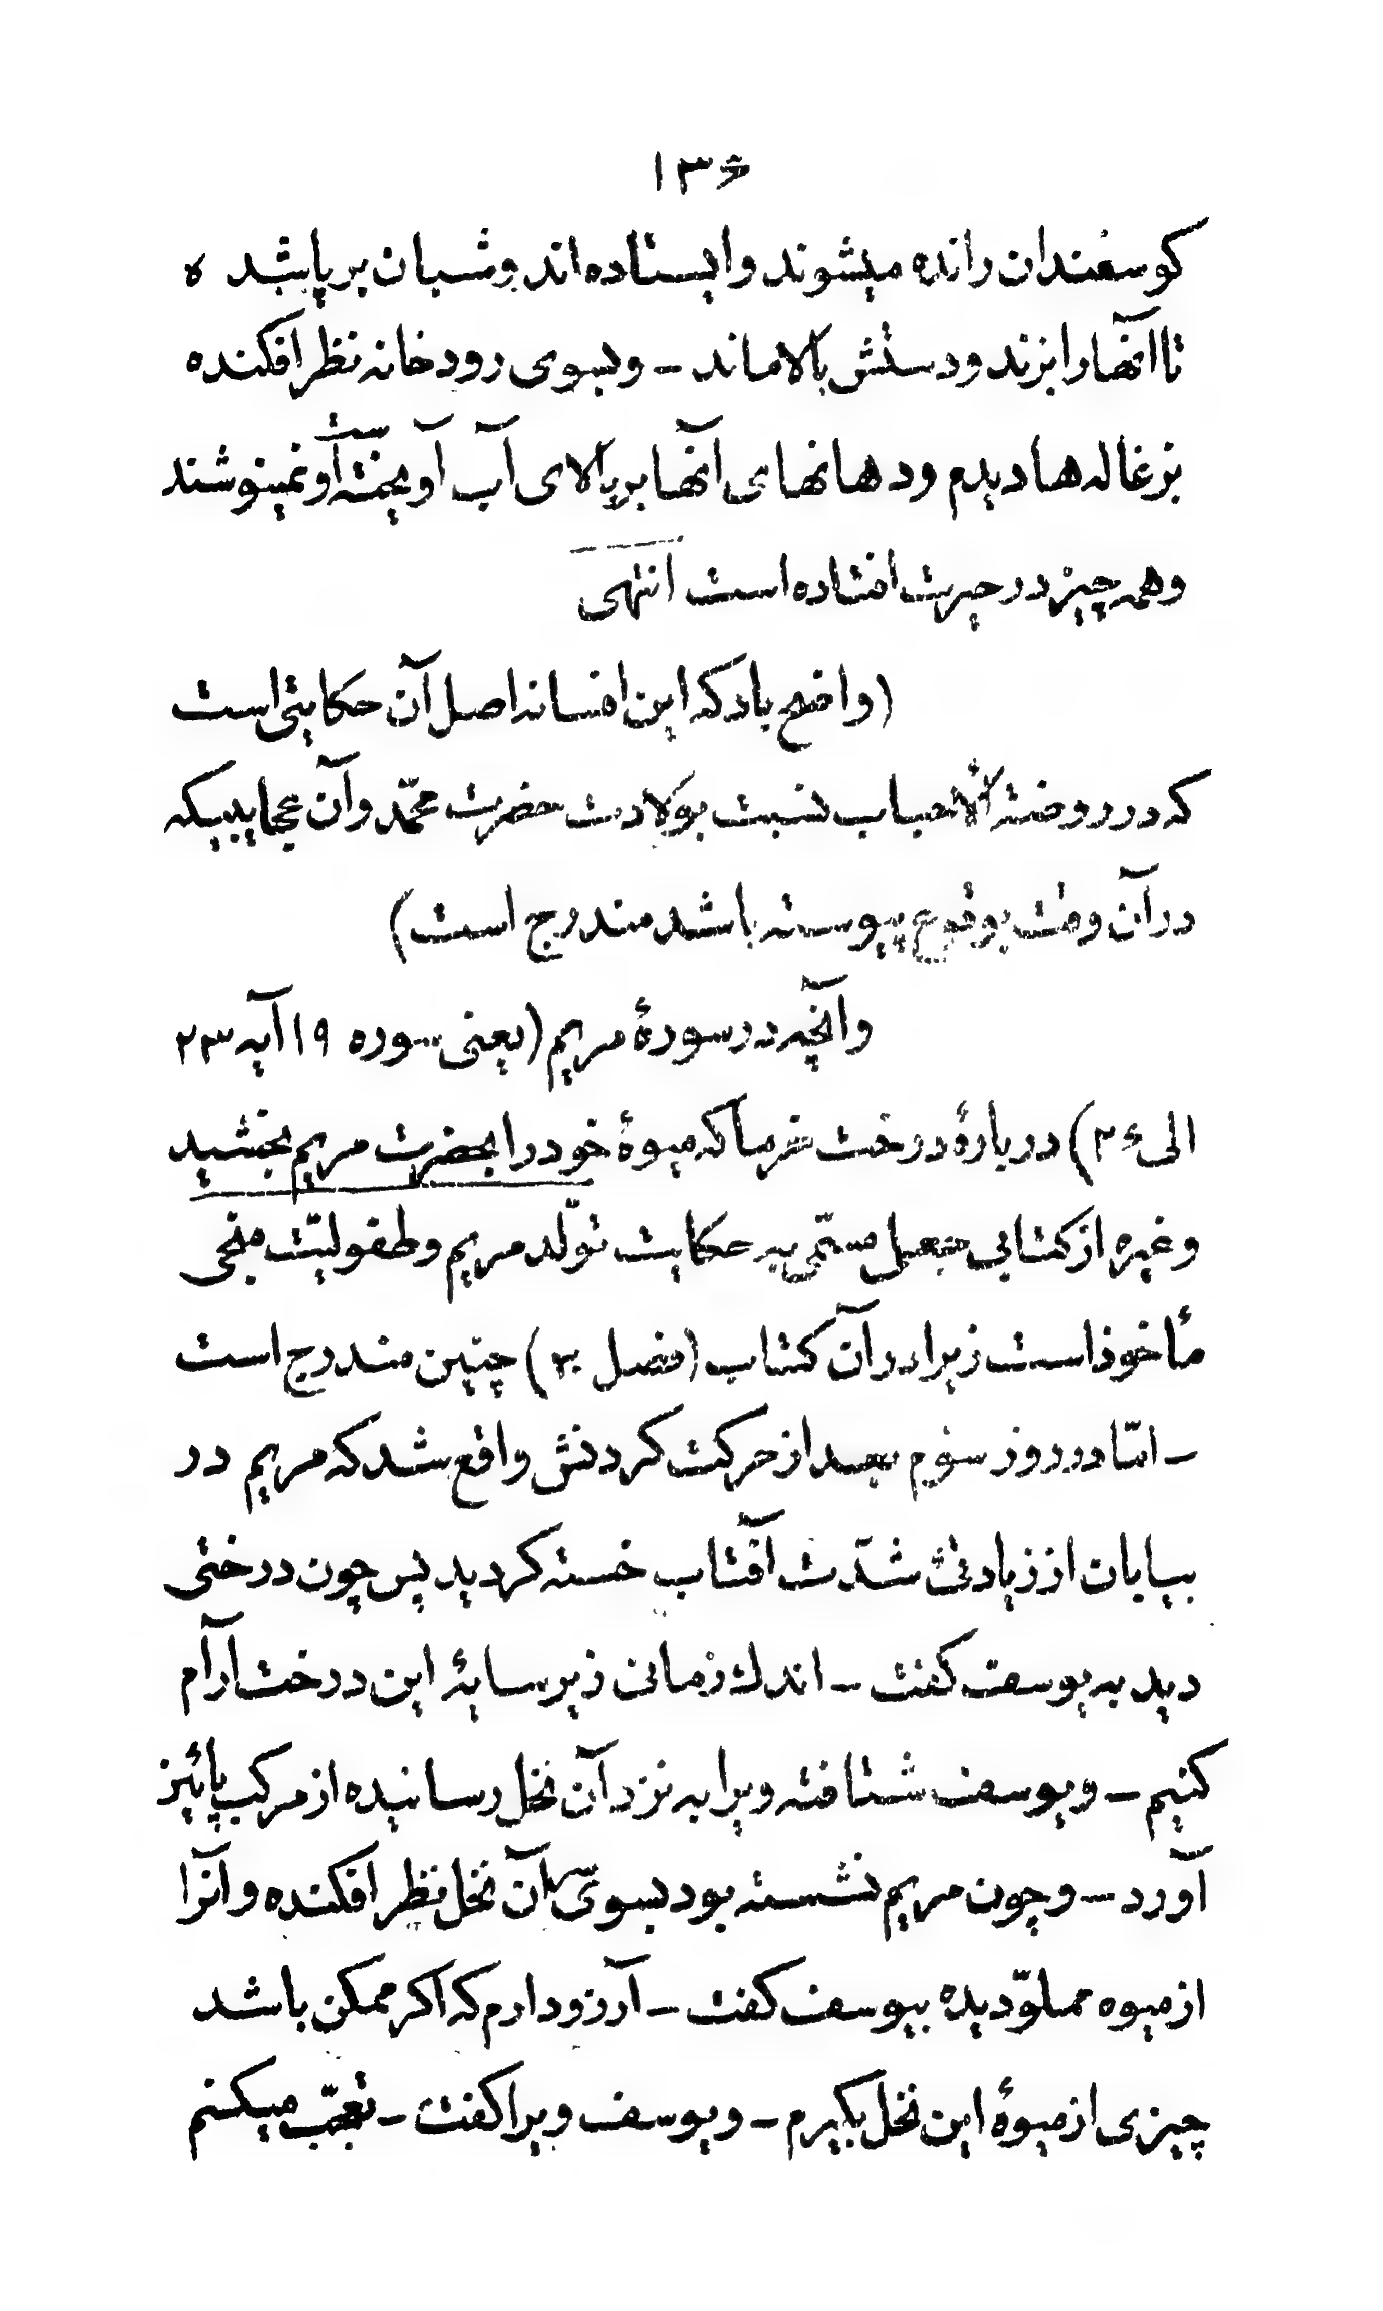 ۱۳۶
کوسفندان رانده میشوند و ایستاده‌اند و شبان برپا شد ه
تا انّها را بزند و دستش بالا ماند ــ و بسوی رودخانه نظر افکنده
بزغاله‌ها دیدم و دهانهای آنها بر بالای آب آویخته است و نمینوشند
و همه چیز در حیرت افتاده است انتهی
(واضح باد که این افسانه اصل آن حکایتی است
که در روضة الأحباب نسبت بولادت حضرت محمّد و آن عجایبیکه
در آن وقت بوقوع پیوسته باشد مندرج است)
و آنچه در سورهٔ مریم (یعنی سوره ۱۹ آیه ۲۳
الی ۲۶) دربارهٔ درخت خرما که میوهٔ خود را بحضرت مریم بخشید
و غیره از کتابی جعلی مسمّی به حکایت تولّد مریم و طفولیّت منجی
مأخوذ است زیرا در آن کتاب (فصل ۲۰) چنین مندرج است
ــ امّا در روز سوّم بعد از حرکت کردنش واقع شد که مریم در
بیابان از زیادتئ شدّت آفتاب خسته کردید پس چون درختی
دید به یوسف کفت ــ اندك زمانی زیر سایهٔ این درخت آرام
کنیم ــ و یوسف شتافته ویرا به نزد آن نخل رسانیده از مرکب پائیز
آورد ــ و چون مریم نشسته بود بسوی سر آن نخل نظر افکنده و انرا
از میوه مملوّ دیده بیوسف کفت ــ آرزو دارم که اکر ممکن باشد
چیزی از میوهٔ این نخل بکیرم ــ و یوسف ویرا کفت ــ تعجّب میکنم